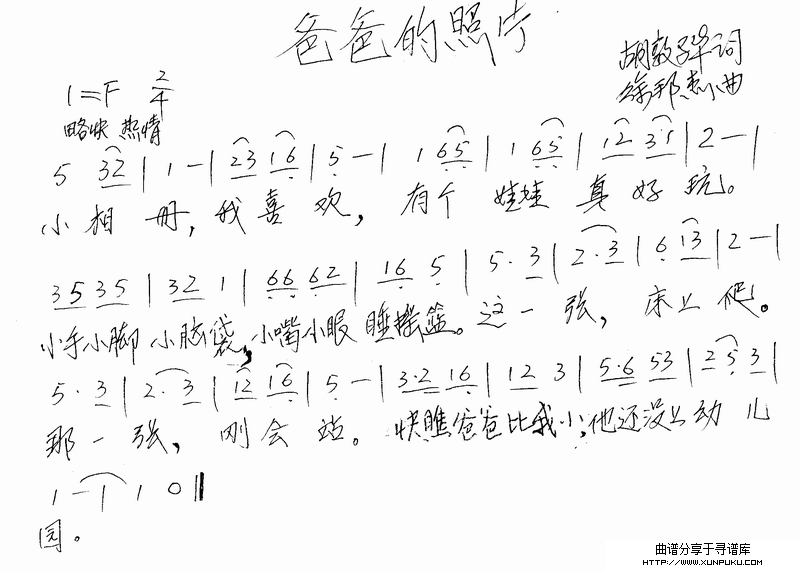 爸爸的照片
胡敦骅词
徐邦杰小曲
1=F 2/4
略快 热情
5 32 | 1 - | 23 16 | 5 - | 1 65 | 1 65 | 12 31 | 2 - |
小相册,我喜欢,有个娃娃真好玩。
35 35 | 32 1 | 66 62 | 16 5 | 5· 3 | 2·3 | 6 13 | 2 - |
小手小脚小脑袋,小嘴小眼睡摇篮。这一张,床上爬。
5· 3 | 2· 3 | 12 16 | 5 - | 3·2 16 | 12 3 | 5·6 53 | 25 3 |
那一张,刚会站。快瞧爸爸比我小,他还没上幼儿
1 - | 1 0 ‖
园。
曲谱分享于寻谱库
HTTP://WWW.XUNPUKU.COM